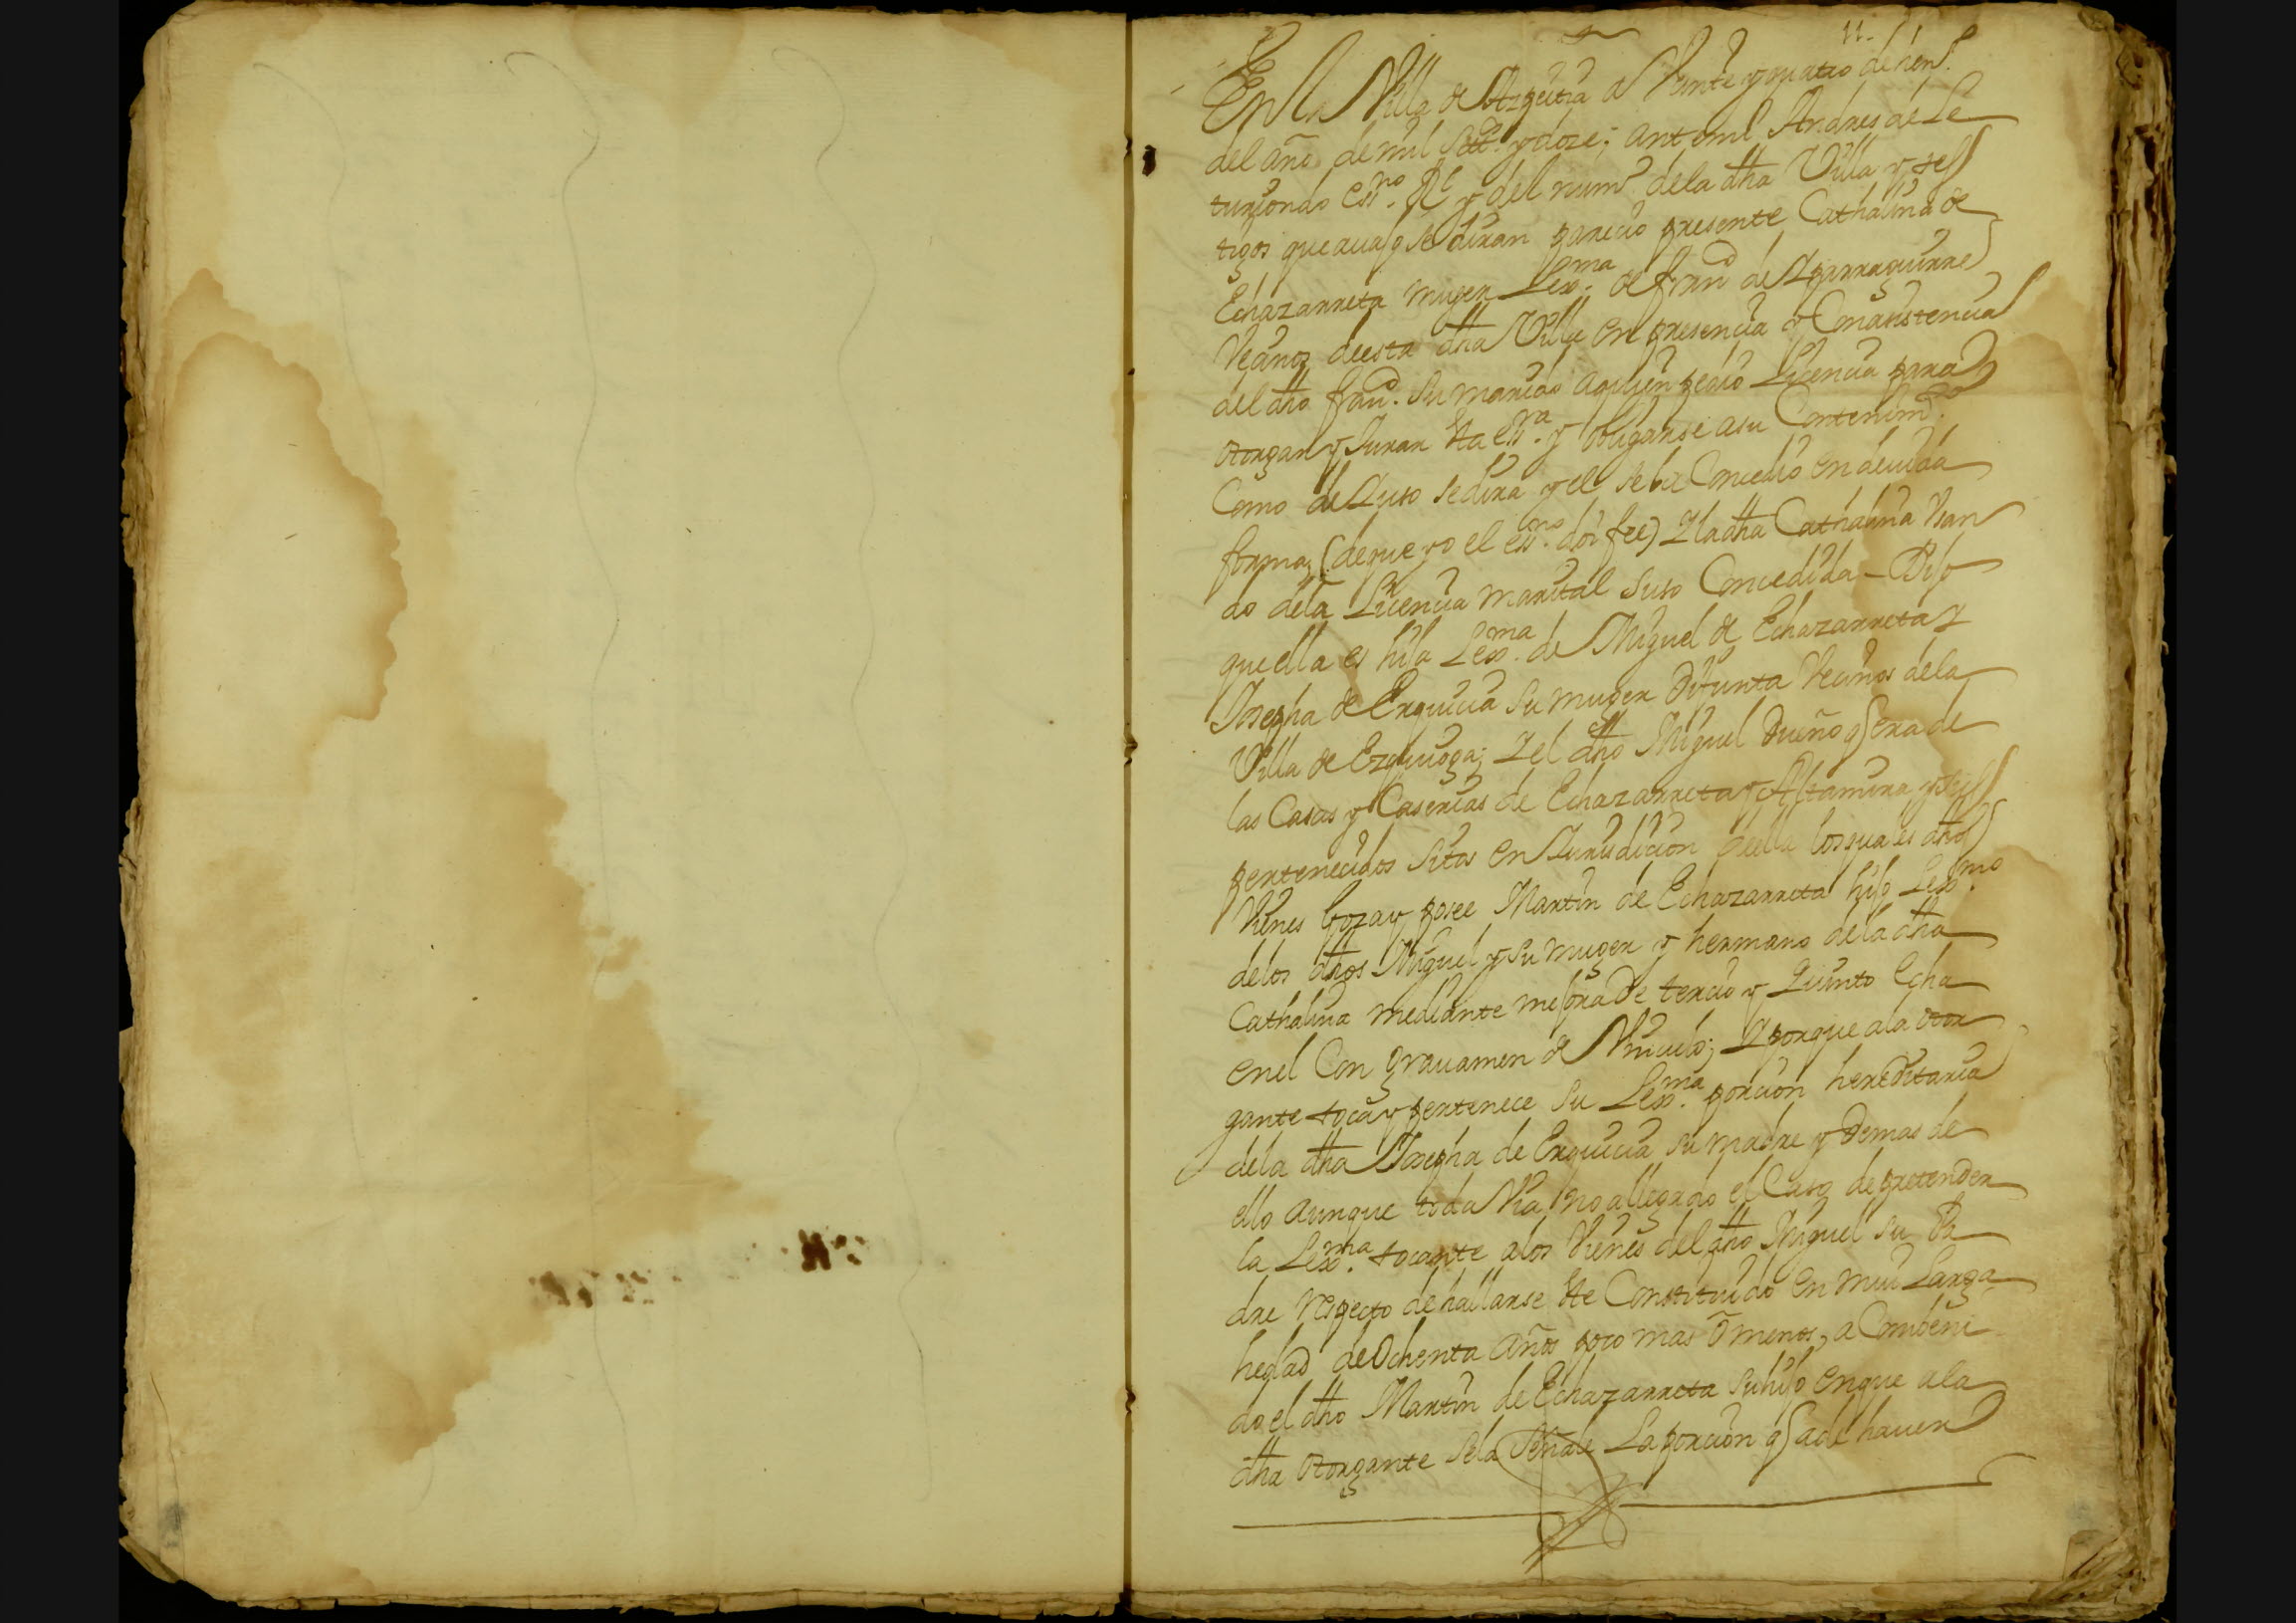 11.
En la Villa de Azpeitia a Veinte y quatro de hen.º
del año de mil Settº. y doze; ante mi Andres de Le
turiondo essno. Rl y del numº dela dha Villa y tes
tigos que auajo se diran pareçio presente Cathalina de
Echazarreta muger Lexma. de franco de Yparraguirre
Veçinos deesta dha Villa en presencia y Conasistencia
del dho franco. Su marido aquien pidio Liçencia para
otorgar y Jurar esta essra. y obligarse asu Contenimto.
Como de Yuso se dira y el se la Conçedio en deuida
forma, (deque yo el essno. doi fee) Y la dha Cathalina Vsan
do dela Liçencia marital Suso Conçedida – Dijo
que ella es hija Lexma. de Miguel de Echazarreta y
Josepha de Erquiçia Su muger Difunta Veçinos dela
Villa de Ezquioga; Y el dho Miguel Dueño q era de
las Casas y Caserias de Echazarreta y Altamira y sus
perteneçidos Sitos en Jurisdiçion de ella los quales dhos
Vienes goza y posee Martin de Echazarreta hijo Lexmo.
delos dhos Miguel y Su muger y hermano dela dha
Cathalina mediante mejora de terçio y Quinto Echa
enel Con grauamen de Vinculo; Y porque ala otor
gante toca y pertenece Su Lexma. porçion hereditaria
dela dha Josepha de Erquiçia Su madre y Demas de
ello aunque toda Via no allegado el Caso de pretender
la Lexma. tocante alos Vienes del dho Miguel Su Pa
dre respecto de hallarse este Constituido en mui Larga
hedad de Ochenta años poco mas ò menos, a Combeni
do el dho Martin de Echazarreta Su hijo enque ala
dha otorgante Sela Señale La porçion q ade hauer